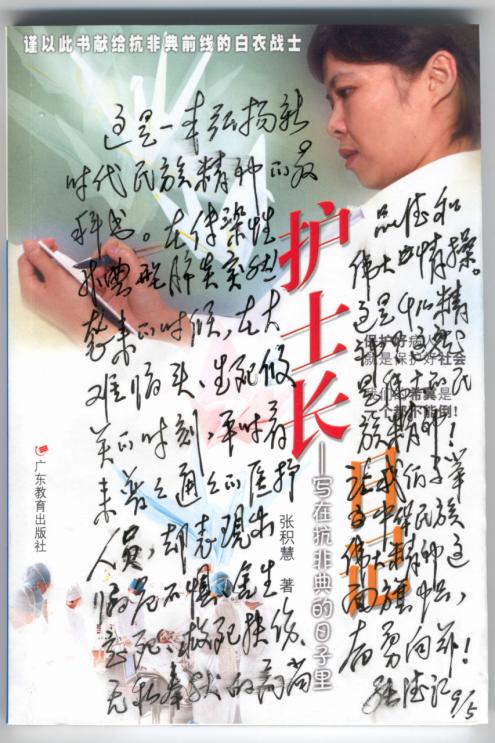 谨以此书献给抗非典前线的白衣战士
这是一本弘扬新
时代民族精神的教
科书。在传染性
非典型肺炎突然
袭来的时候，在大
难临头、生死攸
关的时刻，平时看
来普普通通的医护
人员，却表现出
临危不惧、舍生
忘死、救死扶伤、
无私奉献的高尚
品德和
伟大的情操。
这是中心精
民
族精神！
让我们高举
中华民族
伟大精神这
面旗帜，
奋勇向前！
张德记 9/5
护士长
日记
——写在抗非典的日子里
张积慧 著
保护好病人
就是保护好社会
我们的希冀是
一个都不能倒！
广东教育出版社